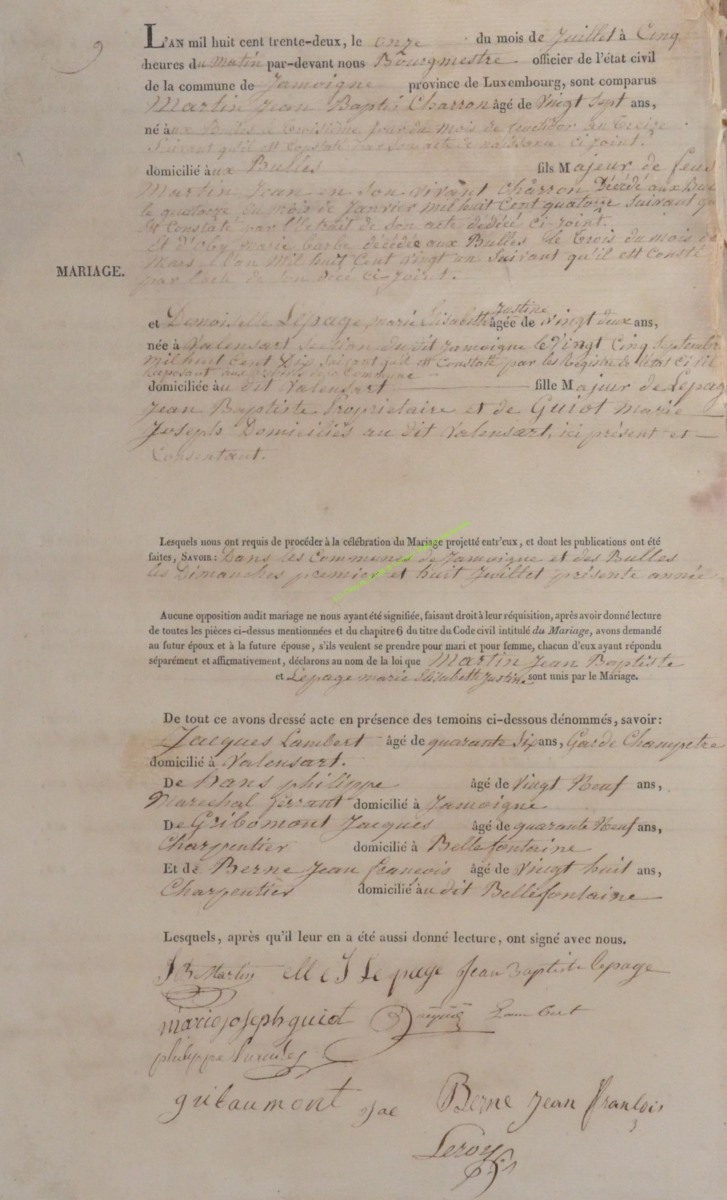 9
L'AN mil huit cent trente-deux, le onze du mois de Juillet à Cinq
heures du Matin par-devant nous Bourgmestre officier de l'état civil
de la commune de Jamoigne province de Luxembourg, sont comparus
Martin Jean Baptte Charron âgé de Vingt Sept ans,
né aux Bulles le troisième jour du mois de an treize
Suivant qu'il est Constaté par son acte de naissance ci joint.
domicilié aux Bulles fils Majeur de feus
Martin Jean en son vivant Charron Décédé aux
le quatorze du mois de Janvier mil huit Cent quatorze suivant qu
Constaté par l'Extrait de son acte dédécé ci-joint.
Et d'Oby Marie Barbe décédée aux Bulles le Trois du mois de
Mars l'an Mil huit Cent Vingt un Suivant qu'il est Consté
par l'acte de son décé ci-joint.
MARIAGE.
et Demoiselle Lepage, marie Elisabeth Justine âgée de Vingt deux ans,
née à Valensart section dudit Jamoigne le Vingt Cinq Septembre
mil huit Cent Dix Suivant qu'il est Constaté par les Registre de l'état civil
Reposant aux la Commune
domiciliée au dit Valensart fille Majeur de Lepag
Jean Baptiste Propriétaire et de Guiot Marie
Joseph Domiciliés au dit Valensart, ici présent et
Consentant.
Lesquels nous ont requis de procéder à la célébration du Mariage projetté entr'eux, et dont les publications ont été
faites, SAVOIR: Dans les Communes de Jamoigne et des Bulles
les Dimanches premier et huit Juillet présente année
Aucune opposition audit mariage ne nous ayant été signifiée, faisant droit à leur réquisition, après avoir donné lecture
de toutes les pièces ci-dessus mentionnées et du chapitre 6 du titre du Code civil intitulé du Mariage, avons demandé
au futur époux et à la future épouse, s'ils veulent se prendre pour mari et pour femme, chacun d'eux ayant répondu
séparément et affirmativement, déclarons au nom de la loi que Martin Jean Baptiste
et Lepage marie Elisabeth Justine sont unis par le Mariage.
De tout ce avons dressé acte en présence des temoins ci-dessous dénommés, savoir:
Jacques Lambert âgé de quarante Six ans, Garde Champetre
domicilié à Valensart.
De hans philippe âgé de Vingt Neuf ans,
Marechal ferrant domicilié à Jamoigne
De Gribomont Jacques âgé de quarante Neuf ans,
Charpentier domicilié à Bellefontaine
Et de Berne Jean françois âgé de Vingt huit ans,
Charpentier domicilié au dit Bellefontaine
Lesquels, après qu'il leur en a été aussi donné lecture, ont signé avec nous.
J B Martin M E J Lepage Jean Baptiste lepage
marie joseph guiot Lambert
philippe
gribaumont Jac Berne Jean françois
Leroy